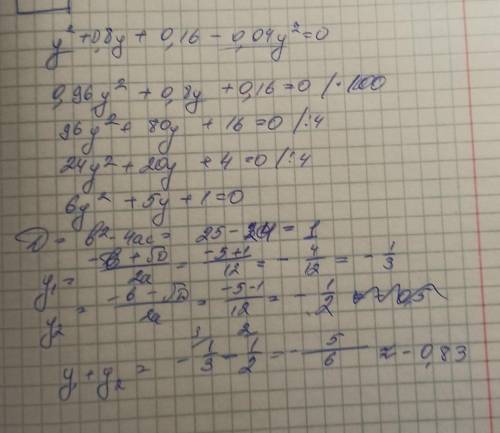 y²+0,8y + 0,16 - 0,04y²=0
0,96y² + 0,8y + 0,16 = 0 /·100
96y² + 80y + 16 = 0 /:4
24y² + 20y + 4 = 0 /:4
6y² + 5y + 1 = 0
D = b² - 4ac = 25 - 24 = 1
y₁ = (-b + √D)/2a = (-5+1)/12 = - 4/12 = - 1/3
y₂ = (-b - √D)/2a = (-5-1)/12 = - 1/2
y₁ + y₂ = - 1/3 - 1/2 = - 5/6 ≈ - 0,83